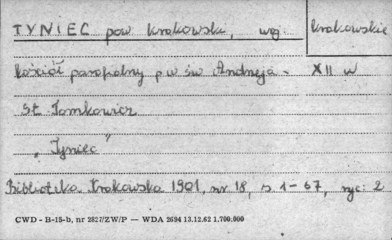 TYNIEC pow krakowski, woj krakowskie
kościół parafialny p w św Andrzeja - XII w
St Tomkowicz
„Tyniec”
Biblioteka Krakowska 1901, nr 18, s. 1-67, ryc. 2
CWD - B-15-b, nr 2827/ZW/P — WDA 2694 13.12.62 1.700.000